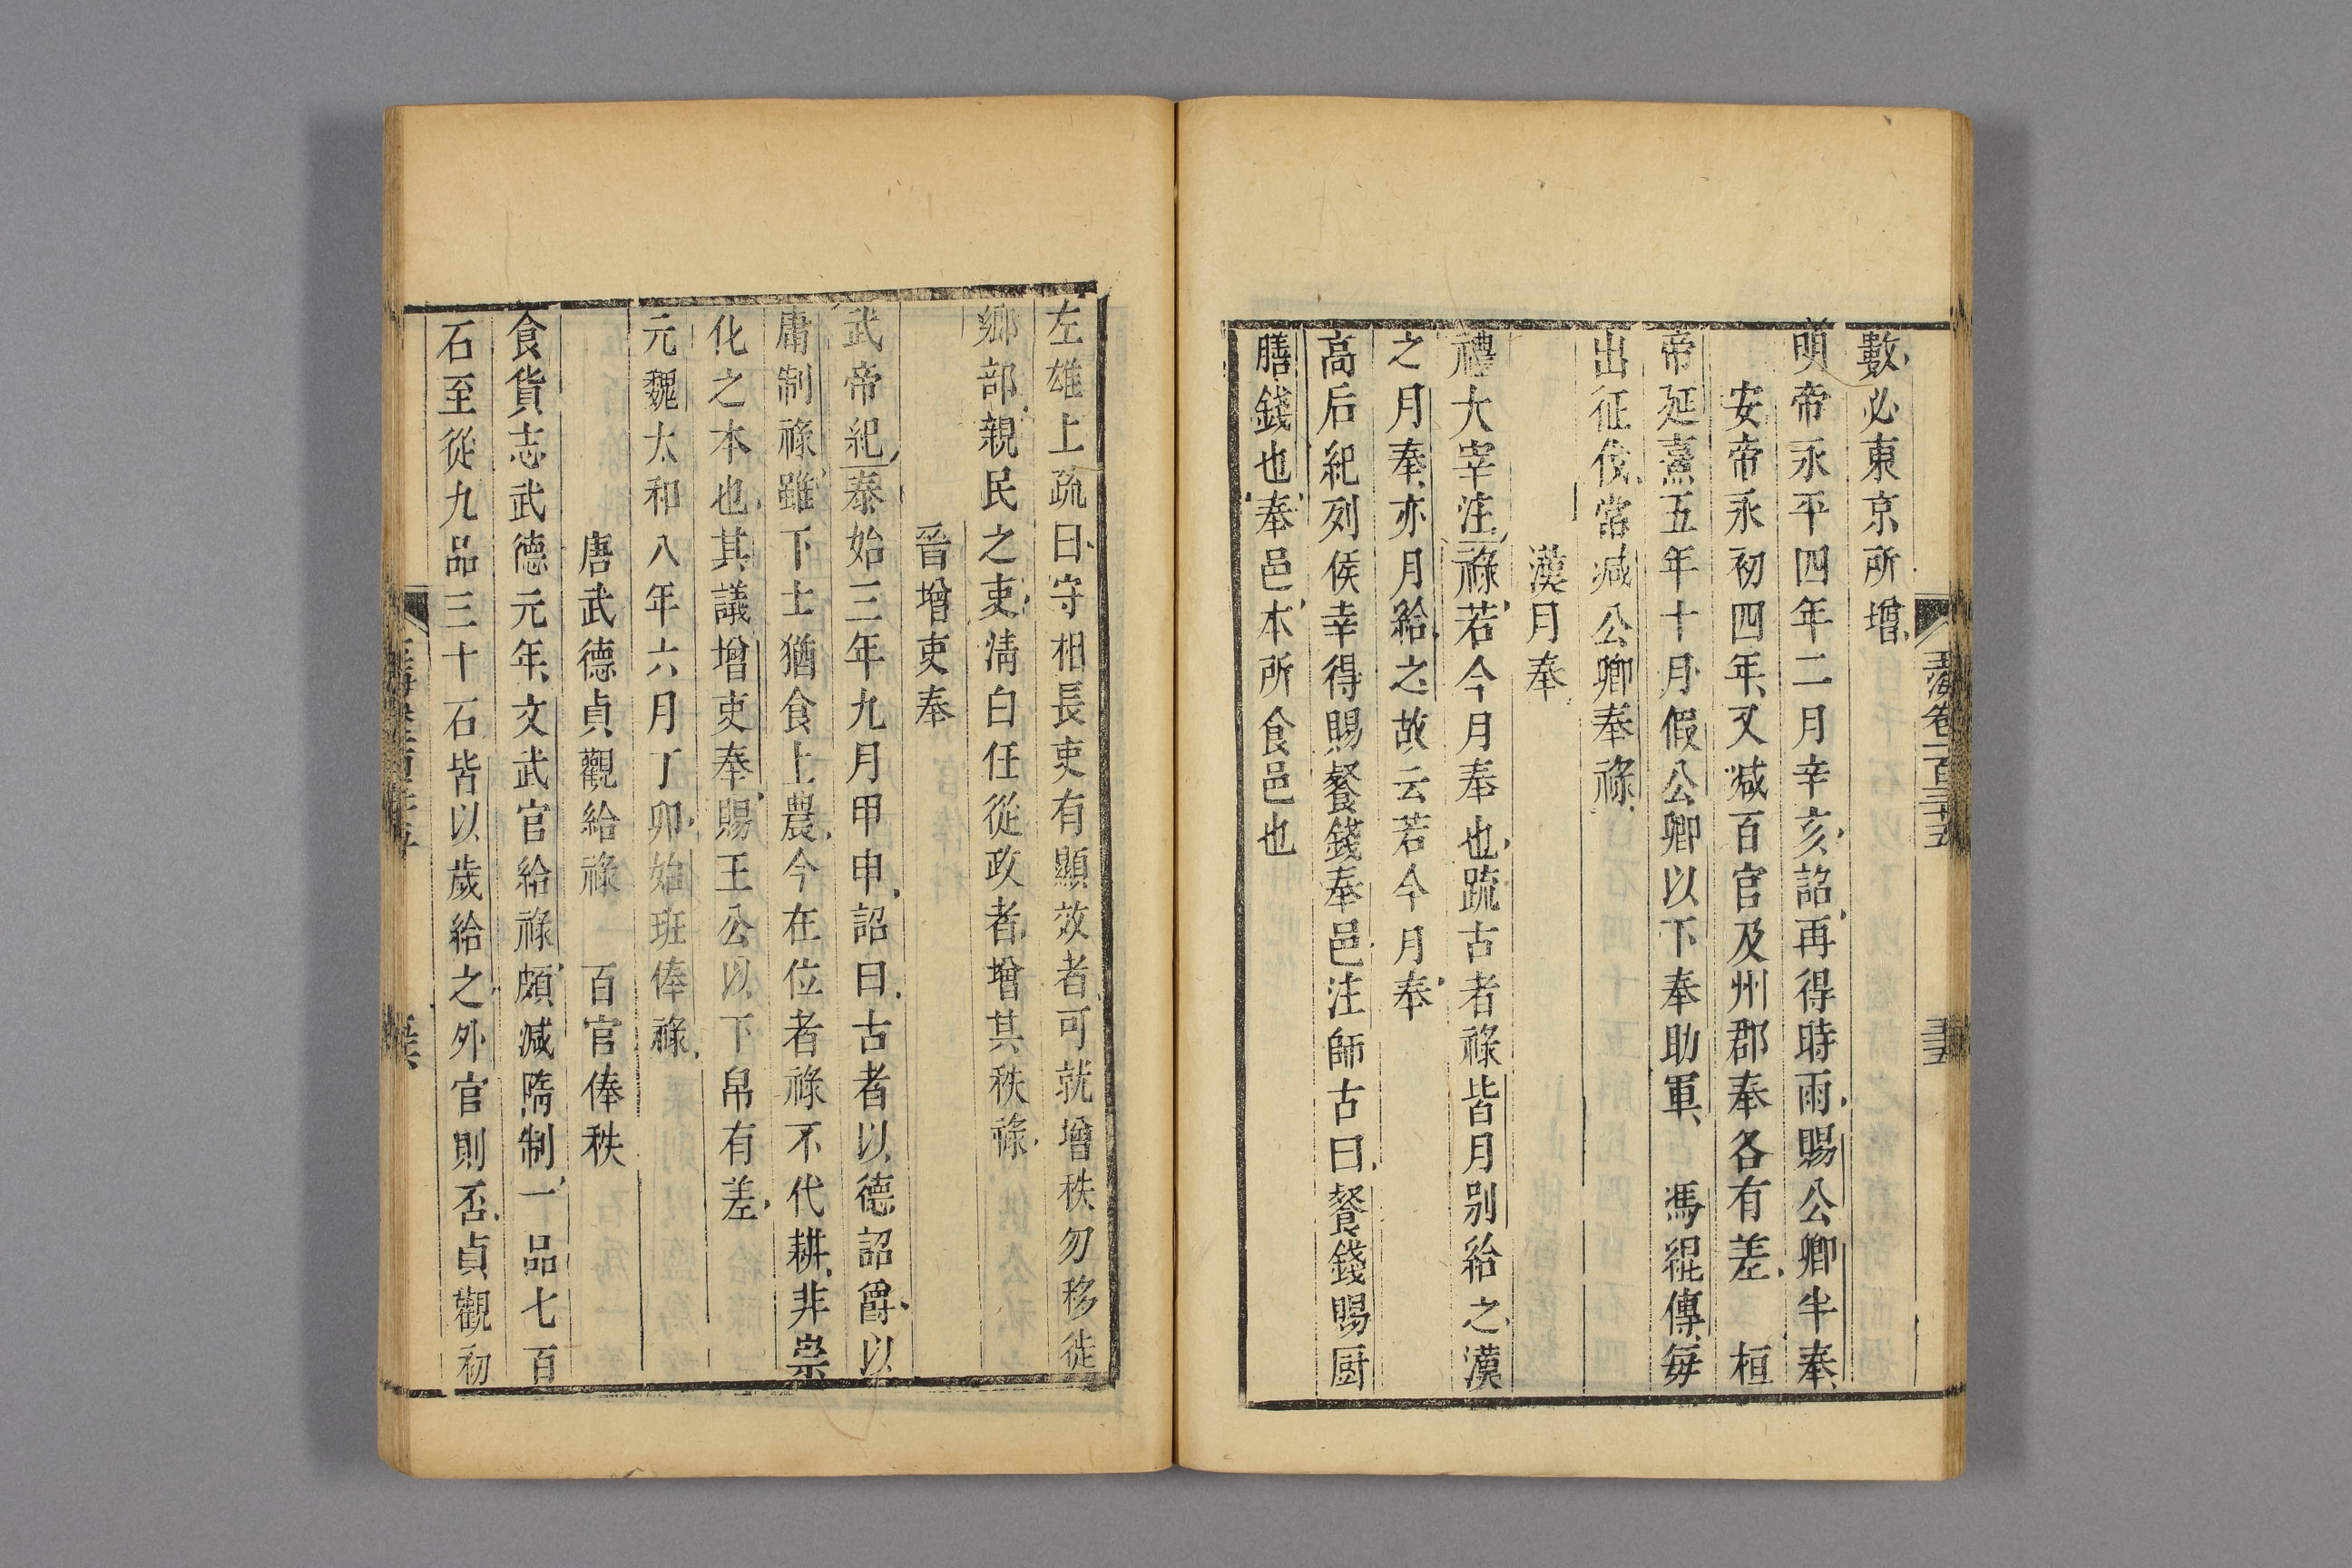 玉海卷一百三十五
數必東京所增
明帝永平四年二月辛亥詔再得時雨賜公卿半奉
安帝永初四年又減百官及州郡奉各有差　桓
帝延熹五年十月假公卿以下奉助軍　馮緄傳每
出征伐常減公卿奉祿
漢月奉
禮大宰注祿若今月奉也疏古者祿皆月別給之漢
之月奉亦月給之故云若今月奉
高后紀列侯幸得賜餐錢奉邑注師古曰餐錢賜厨
膳錢也奉邑本所食邑也
左雄上疏曰守相長吏有顯效者可就增秩勿移徙
鄉部親民之吏清白任從政者增其秩祿
晉增吏奉
武帝紀泰始三年九月甲申詔曰古者以德詔爵以
庸制祿雖下士猶食上農今在位者祿不代耕非崇
化之本也其議增吏奉賜王公以下帛有差
元魏太和八年六月丁卯始班俸祿
唐武德貞觀給祿　百官俸秩
食貨志武德元年文武官給祿頗減隋制一品七百
石至從九品三十石皆以歲給之外官則否貞觀初